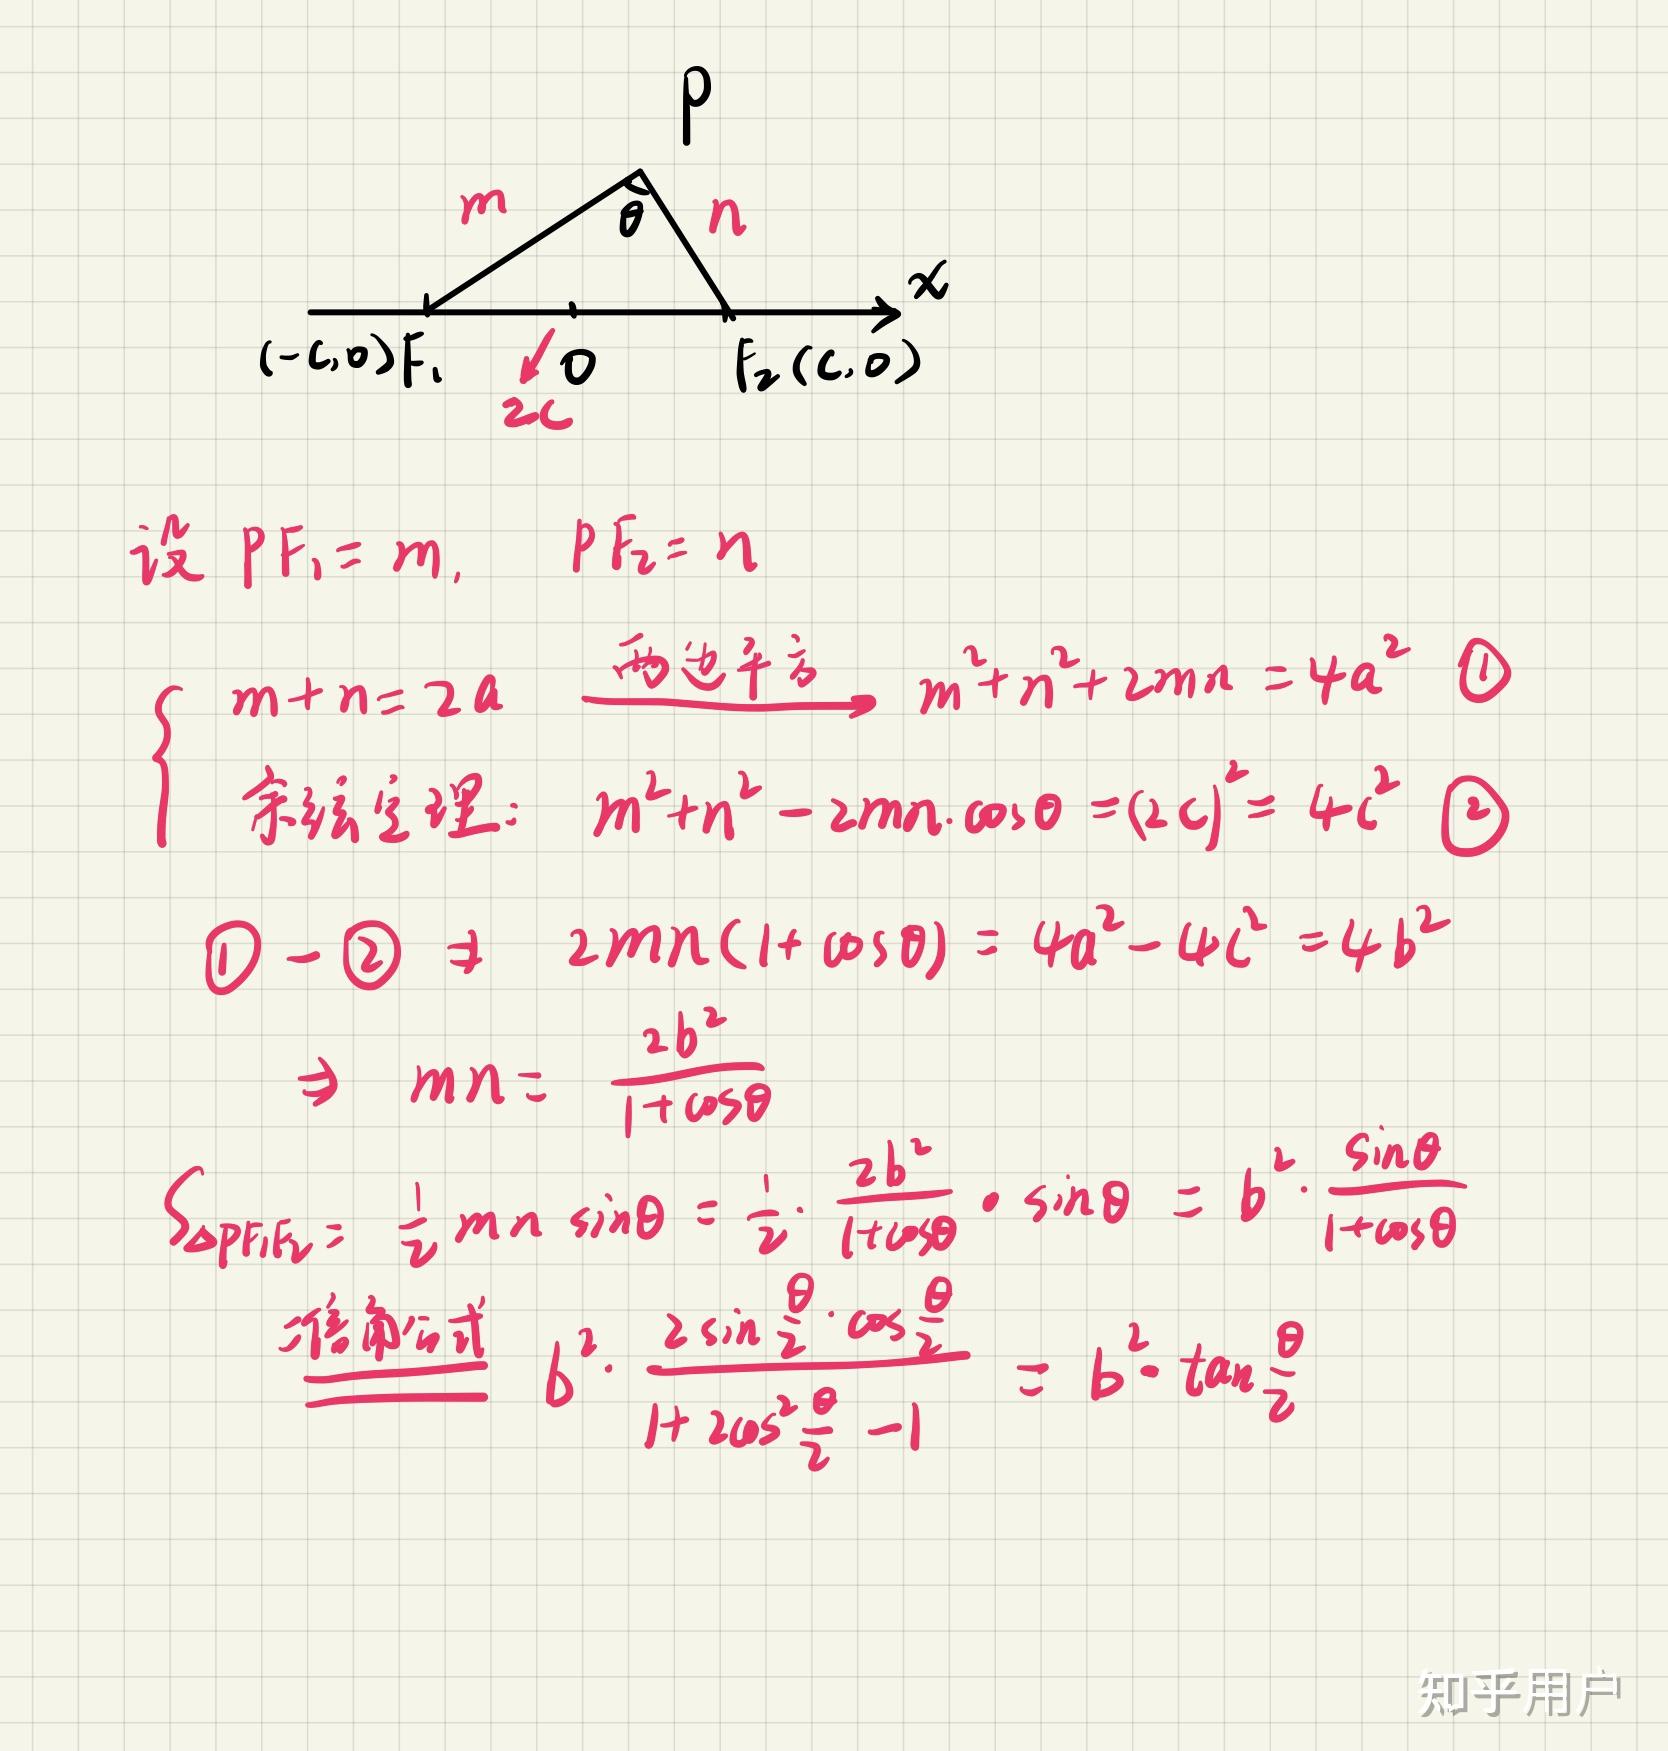 P
m θ n
x
(-c,0)F₁ O F₂(c,0)
2c
设 PF₁=m, PF₂=n
m+n=2a 两边平方 m²+n²+2mn=4a² ①
余弦定理: m²+n²-2mn·cosθ=(2c)²=4c² ②
①-② ⇒ 2mn(1+cosθ)=4a²-4c²=4b²
⇒ mn=2b²/(1+cosθ)
S△PF₁F₂=1/2 mn sinθ=1/2·2b²/(1+cosθ)·sinθ=b²·sinθ/(1+cosθ)
二倍角公式 b²·(2sin θ/2·cos θ/2)/(1+2cos² θ/2 -1)=b²·tan θ/2
知乎用户